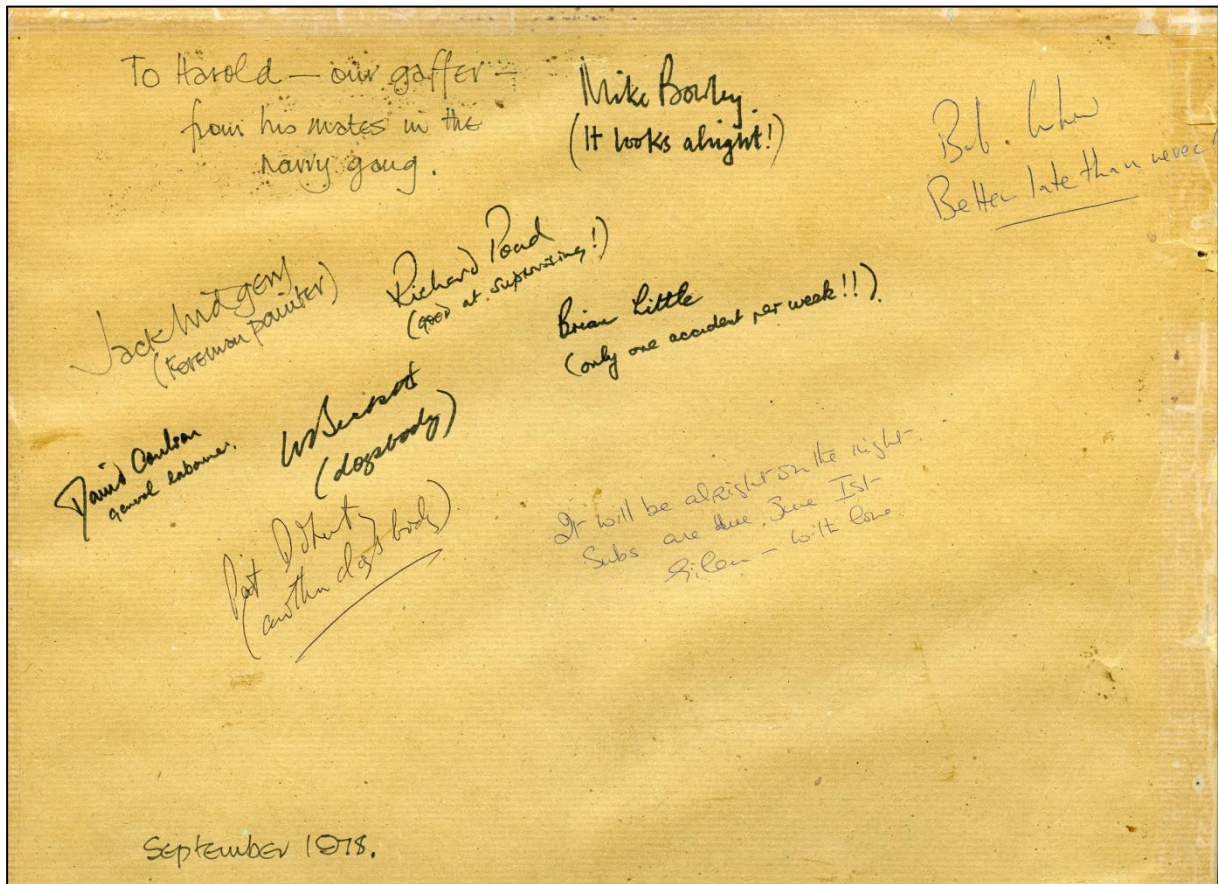 To Harold — our gaffer —
from his mates in the
navvy gang.
Mike Bowley.
(It looks alright!)
Bob.
Better late than never!
Jack
(Foreman painter)
Richard Poad
(good at supervising!)
Brian Little
(only one accident per week!!).
David Coulson
general labourer.
(dogsbody)
Pat Doherty
(another dogsbody).
It will be alright on the night.
Subs are due June 1st
Eileen — with love.
September 1978.